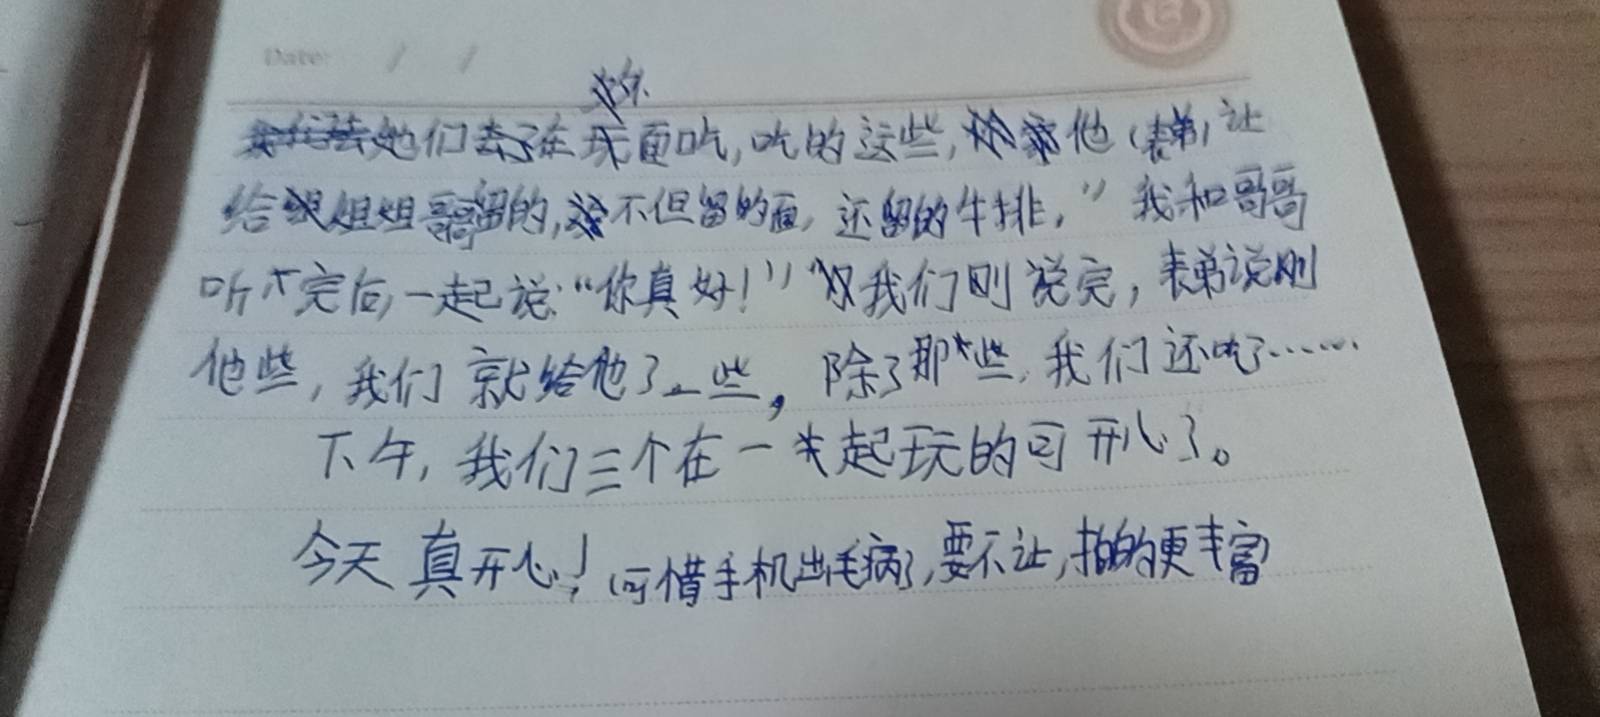 Date: / /
他们在面吃,吃的这些,他(表弟)让
给姐姐哥哥留的,不但留的面,还留的牛排,"我和哥哥
听完后,一起说:"你真好!"我们刚说完,表弟说刚
他些,我们就给他了一些,除了那些,我们还吃了……
下午,我们三个在一起玩的可开心了。
今天真开心!(可惜手机出毛病了,要不让,拍的更丰富